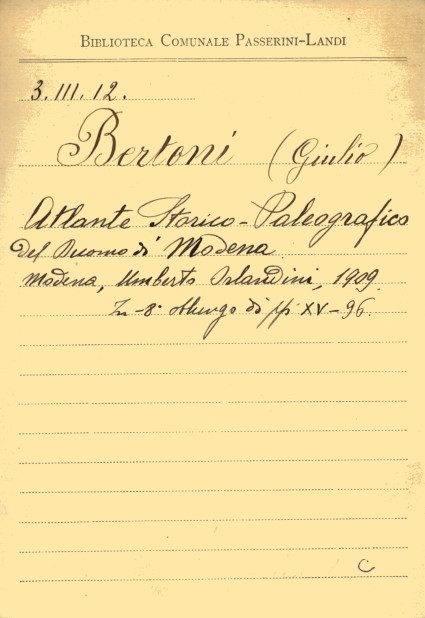 BIBLIOTECA COMUNALE PASSERINI-LANDI
3.III.12.
Bertoni (Giulio)
Atlante Storico-Paleografico
del Duomo di Modena
Modena, Umberto Orlandini, 1909.
In-8° oblungo di pp XV-96.
C